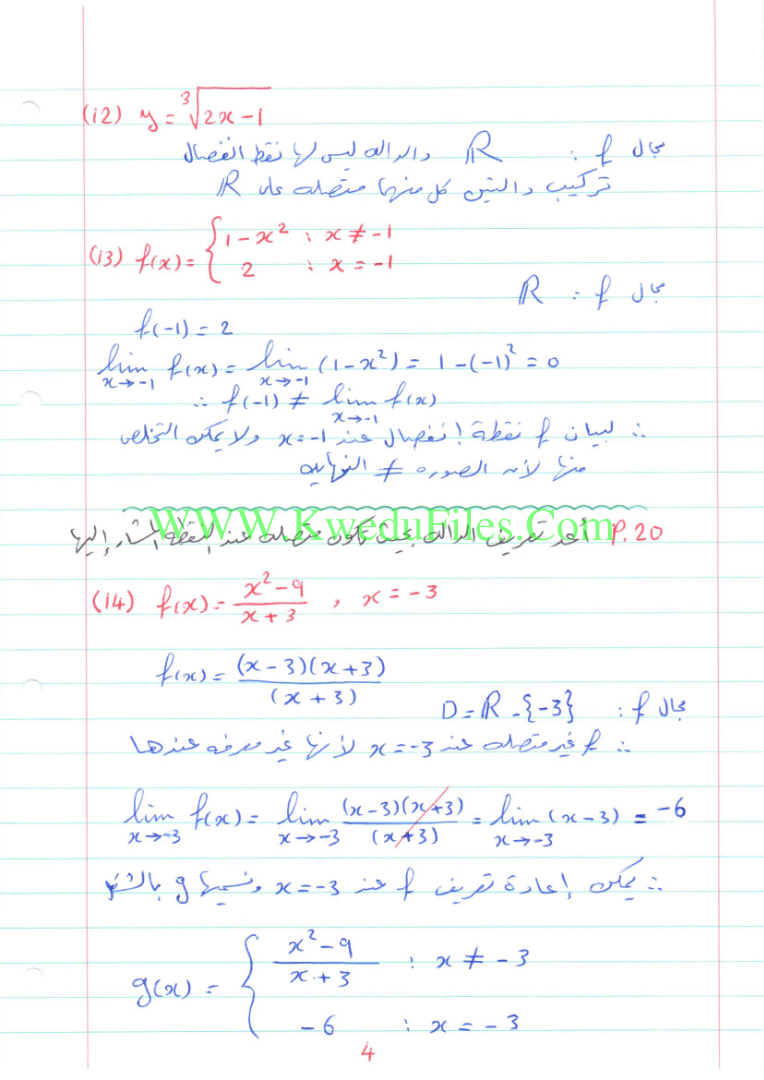 (12) y = ∛(2x-1)
مجال f : R والداله ليس لها نقط انفصال
تركيب دالتين كل منهما متصله على R
(13) f(x) = { 1-x² : x ≠ -1
2 : x = -1
مجال f : R
f(-1) = 2
lim x→-1 f(x) = lim x→-1 (1-x²) = 1-(-1)² = 0
∴ f(-1) ≠ lim x→-1 f(x)
∴ لبيان f نقطة إنفصال عند x=-1 ولا يمكن التخلص
منها لأن الصوره ≠ النهايه
WWW.KweduFiles.Com
P.20 أعد تعريف الداله بحيث تكون متصله عند النقطة المشار إليها
(14) f(x) = (x²-9)/(x+3) , x = -3
f(x) = (x-3)(x+3)/(x+3)
مجال f : D = R - {-3}
∴ f غير متصله عند x=-3 لأنها غير معرفه عندها
lim x→-3 f(x) = lim x→-3 (x-3)(x+3)/(x+3) = lim x→-3 (x-3) = -6
∴ يمكن إعادة تعريف f عند x=-3 ونسميها g بالشكل
g(x) = { (x²-9)/(x+3) : x ≠ -3
-6 : x = -3
4